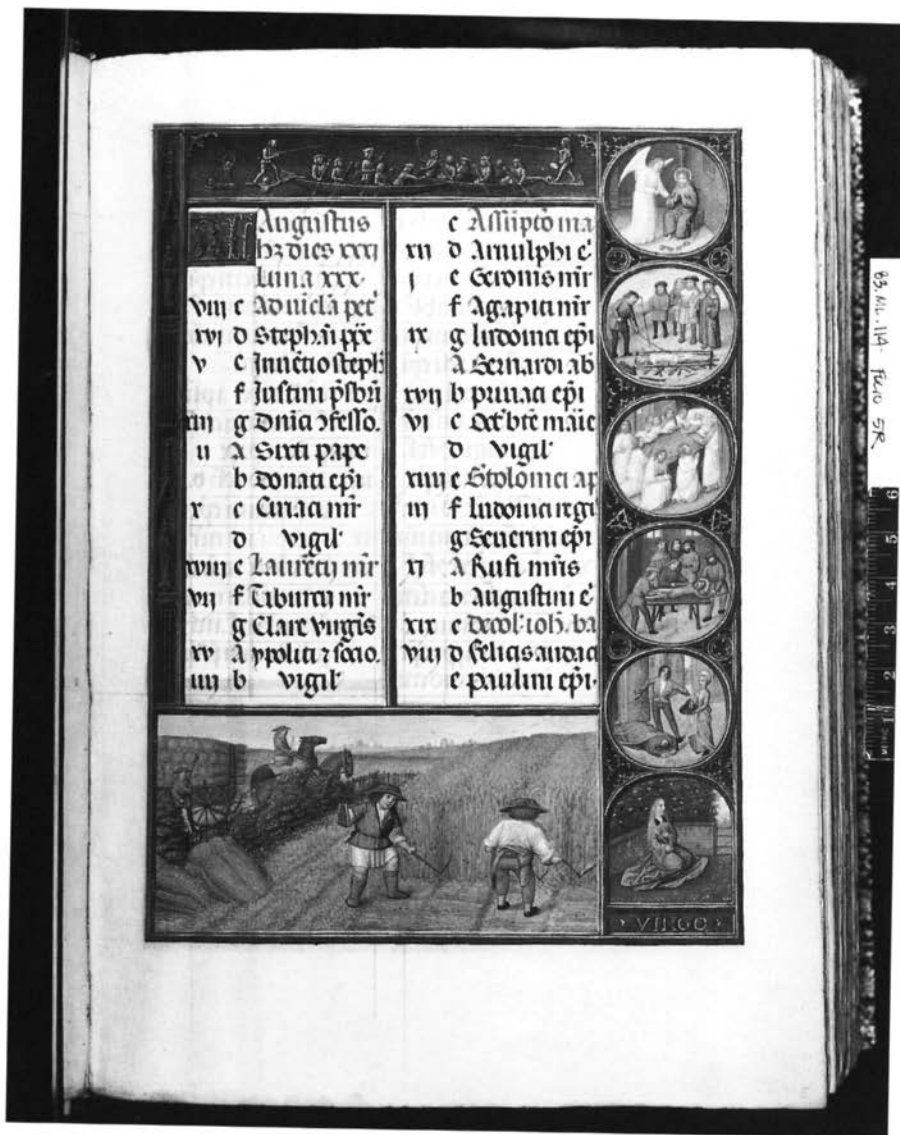 KL Augustus
hꝫ dies xxxj
Luna xxx·
viij c Ad vīcla pet͛
xvj d Stephāi ppe
v e Inuētio steph
f Iustini p̄sbri
xiij g Dn̄ica ↄfesso.
ij A Sixti pape
b Donati ep̄i
x c Ciriaci mr̄
d vigil᷑
xviij e Laurētij mr̄
vij f Tiburtij mr̄
g Clare virgīs
xv A ypoliti ⁊ socio.
iiij b vigil᷑
c Assūptō ma
xij d Arnulphi e᷑
j e Geronis mr̄
f Agapiti mr̄
ix g ludouici ep̄i
A Bernardi ab̄
xvij b priuati ep̄i
vj c Oct᷑ btē maie
d vigil᷑
xiiij e Btolomei ap
iij f ludouici regi
g Seuerini ep̄i
xj A Rufi mr̄is
b Augustini e᷑
xix c Decol᷑ ioh̄. ba
viij d felicis audac
e paulini ep̄i·
VIRGO
83.ML.114- Folio 5R
6
5
4
3
2
1